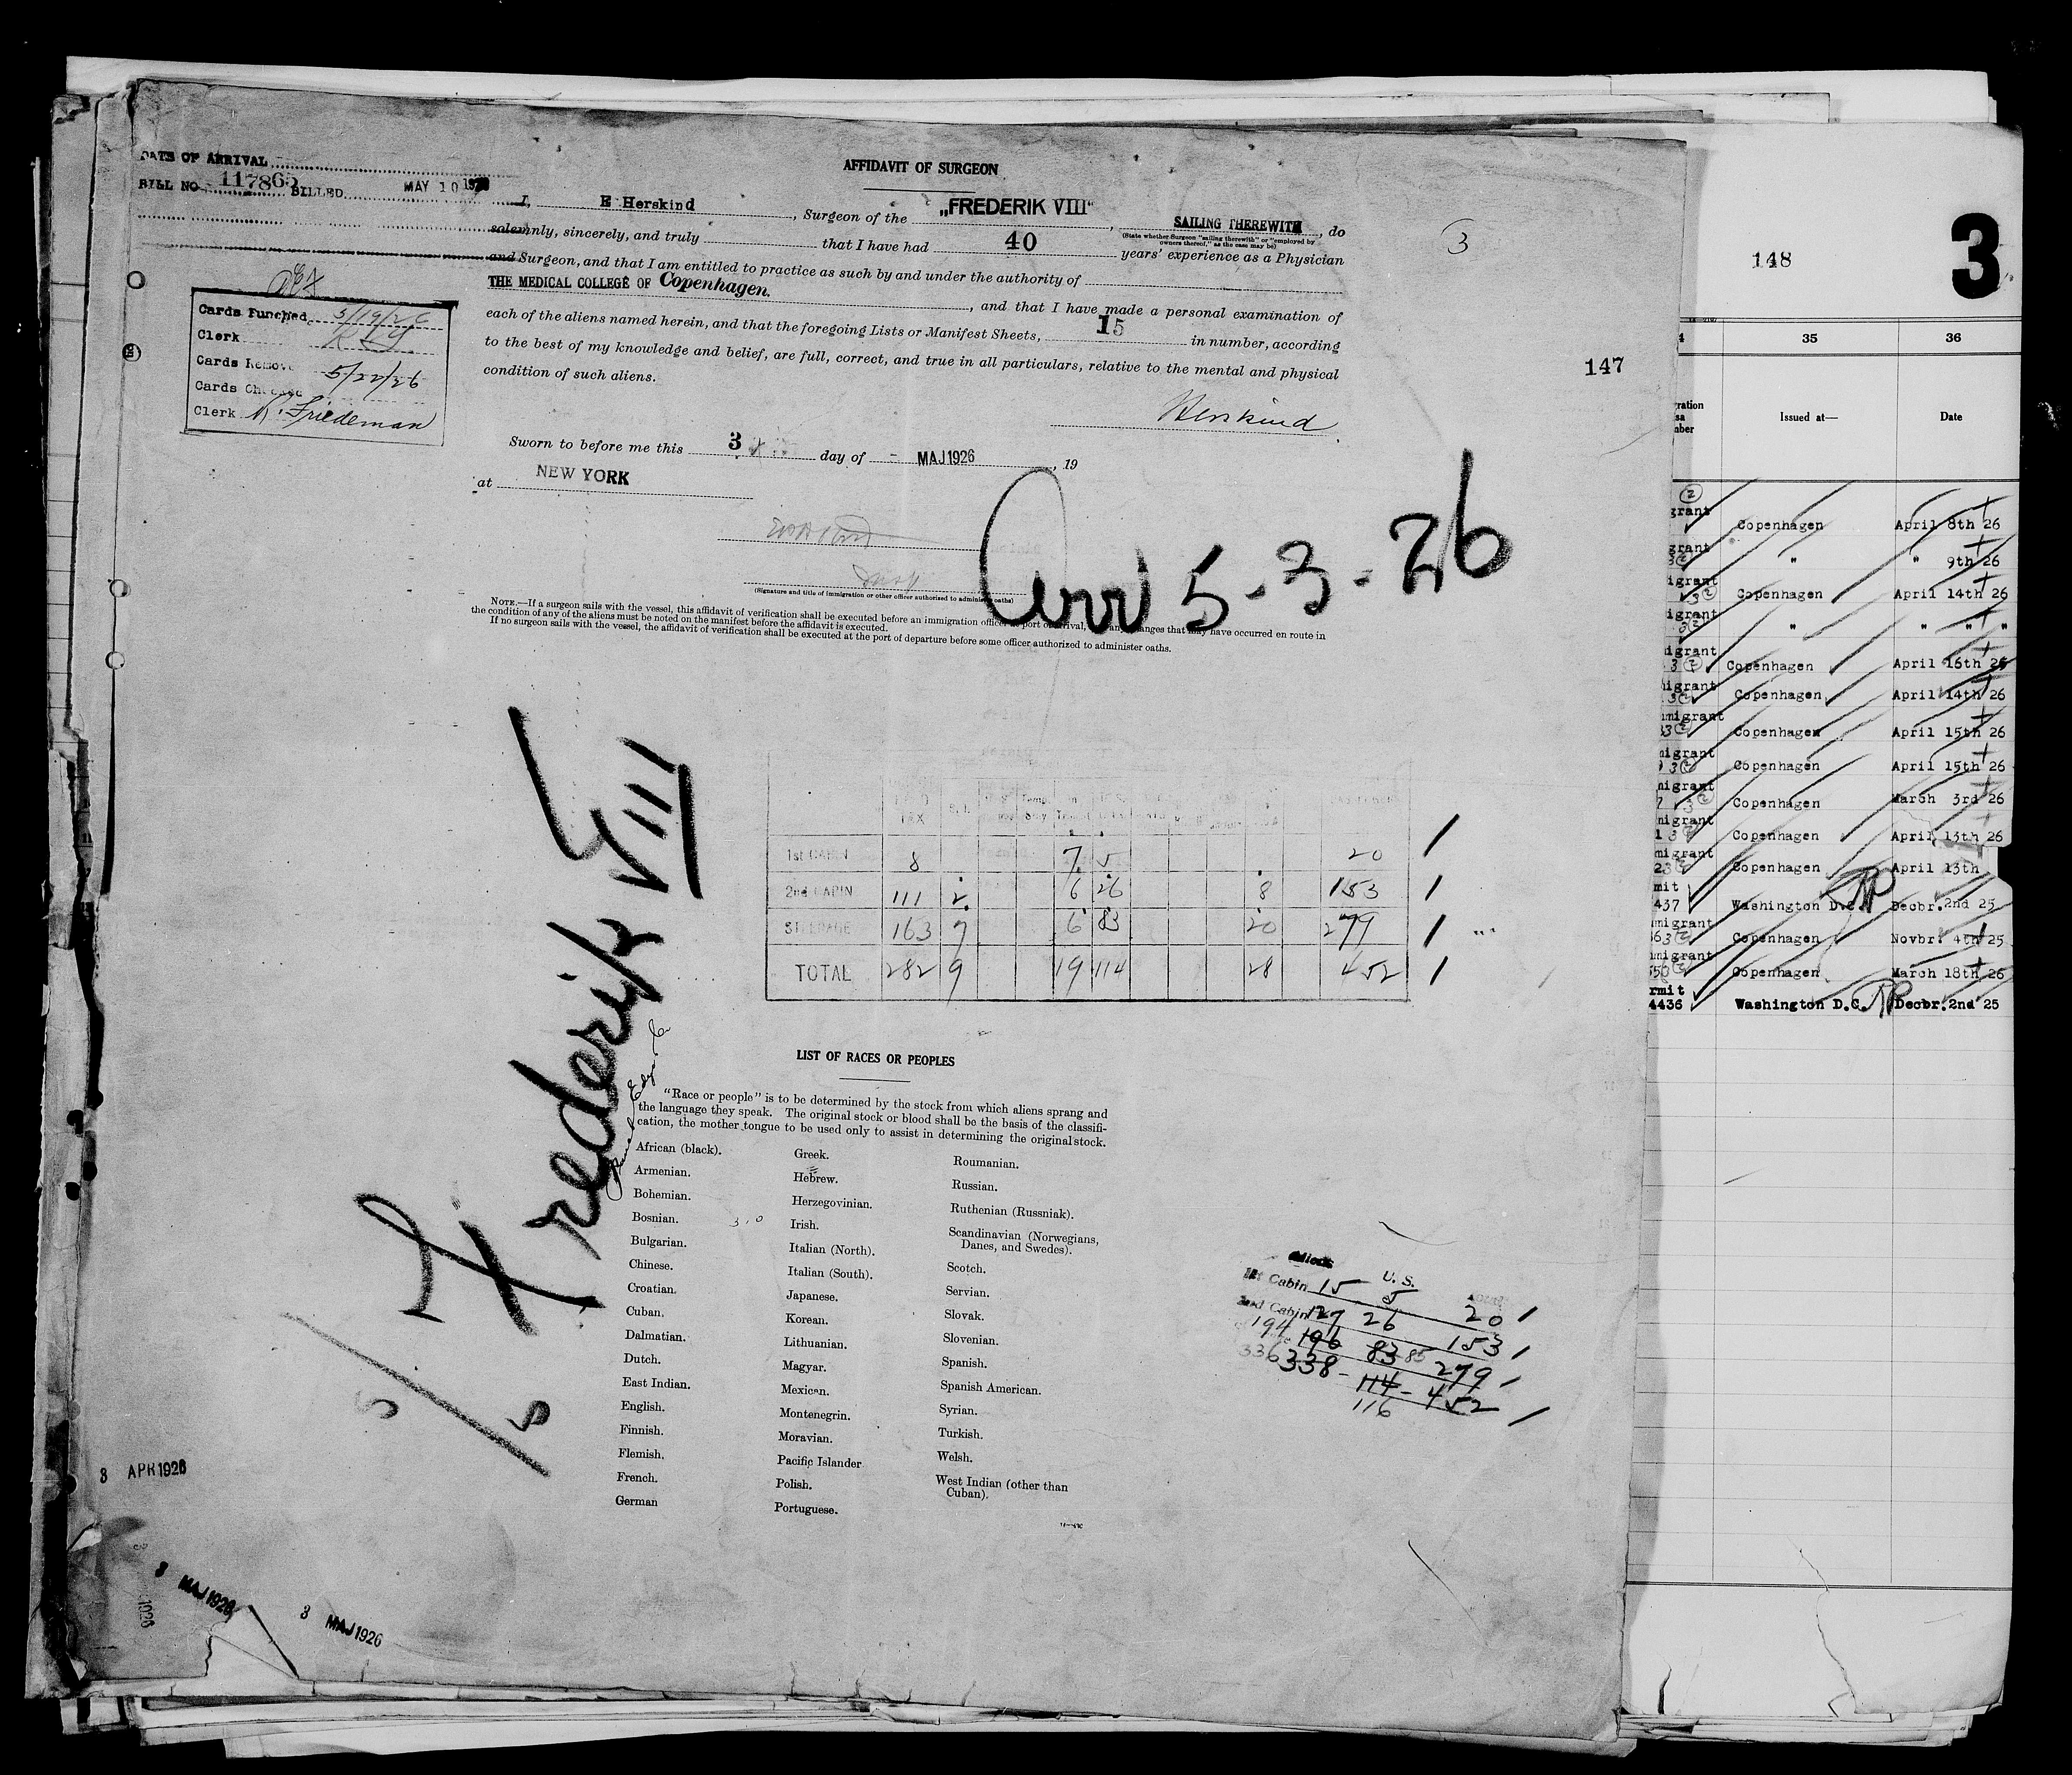 DATE OF ARRIVAL
BILL NO. 117865 BILLED MAY 10 1926
AFFIDAVIT OF SURGEON
I, E Herskind, Surgeon of the „FREDERIK VIII“, SAILING THEREWITH, do
(State whether Surgeon "sailing therewith" or "employed by owners thereof," as the case may be)
solemnly, sincerely, and truly that I have had 40 years' experience as a Physician
and Surgeon, and that I am entitled to practice as such by and under the authority of
THE MEDICAL COLLEGE OF Copenhagen., and that I have made a personal examination of
each of the aliens named herein, and that the foregoing Lists or Manifest Sheets, 15 in number, according
to the best of my knowledge and belief, are full, correct, and true in all particulars, relative to the mental and physical
condition of such aliens.
Herskind
Sworn to before me this 3 day of MAJ 1926, 19
at NEW YORK
(Signature and title of immigration or other officer authorized to administer oaths)
Arr 5-3-26
NOTE.—If a surgeon sails with the vessel, this affidavit of verification shall be executed before an immigration officer port of arrival, changes that may have occurred en route in
the condition of any of the aliens must be noted on the manifest before the affidavit is executed.
If no surgeon sails with the vessel, the affidavit of verification shall be executed at the port of departure before some officer authorized to administer oaths.
Cards Punched 5/19/26
Clerk
Cards Remove 5/22/26
Cards
Clerk R. Friedeman
3
147
Frederik VIII
5/5
1st CABIN 8 7 5 20
2nd CABIN 111 2 6 26 8 153
STEERAGE 163 7 6 83 20 279
TOTAL 282 9 19 114 28 452
LIST OF RACES OR PEOPLES
"Race or people" is to be determined by the stock from which aliens sprang and
the language they speak. The original stock or blood shall be the basis of the classifi-
cation, the mother tongue to be used only to assist in determining the original stock.
African (black).
Armenian.
Bohemian.
Bosnian.
Bulgarian.
Chinese.
Croatian.
Cuban.
Dalmatian.
Dutch.
East Indian.
English.
Finnish.
Flemish.
French.
German
Greek.
Hebrew.
Herzegovinian.
Irish.
Italian (North).
Italian (South).
Japanese.
Korean.
Lithuanian.
Magyar.
Mexican.
Montenegrin.
Moravian.
Pacific Islander
Polish.
Portuguese.
Roumanian.
Russian.
Ruthenian (Russniak).
Scandinavian (Norwegians,
Danes, and Swedes).
Scotch.
Servian.
Slovak.
Slovenian.
Spanish.
Spanish American.
Syrian.
Turkish.
Welsh.
West Indian (other than
Cuban).
Aliens U. S. Total
1st Cabin 15 5 20
2nd Cabin 127 26 153
194 196 83 85 279
336 338 - 114 - 452
116
8 APR 1926
3 MAJ 1926
3 MAJ 1926
1926
148
3
35 36
Issued at— Date
Copenhagen April 8th 26
" " 9th 26
Copenhagen April 14th 26
" " " "
Copenhagen April 16th 26
Copenhagen April 14th 26
Copenhagen April 15th 26
Copenhagen April 15th 26
Copenhagen March 3rd 26
Copenhagen April 13th 26
Copenhagen April 13th
437 Washington D.C. Decbr. 2nd 25
Copenhagen Novbr. 4th 25
Copenhagen March 18th 26
4436 Washington D.C. Decbr. 2nd 25